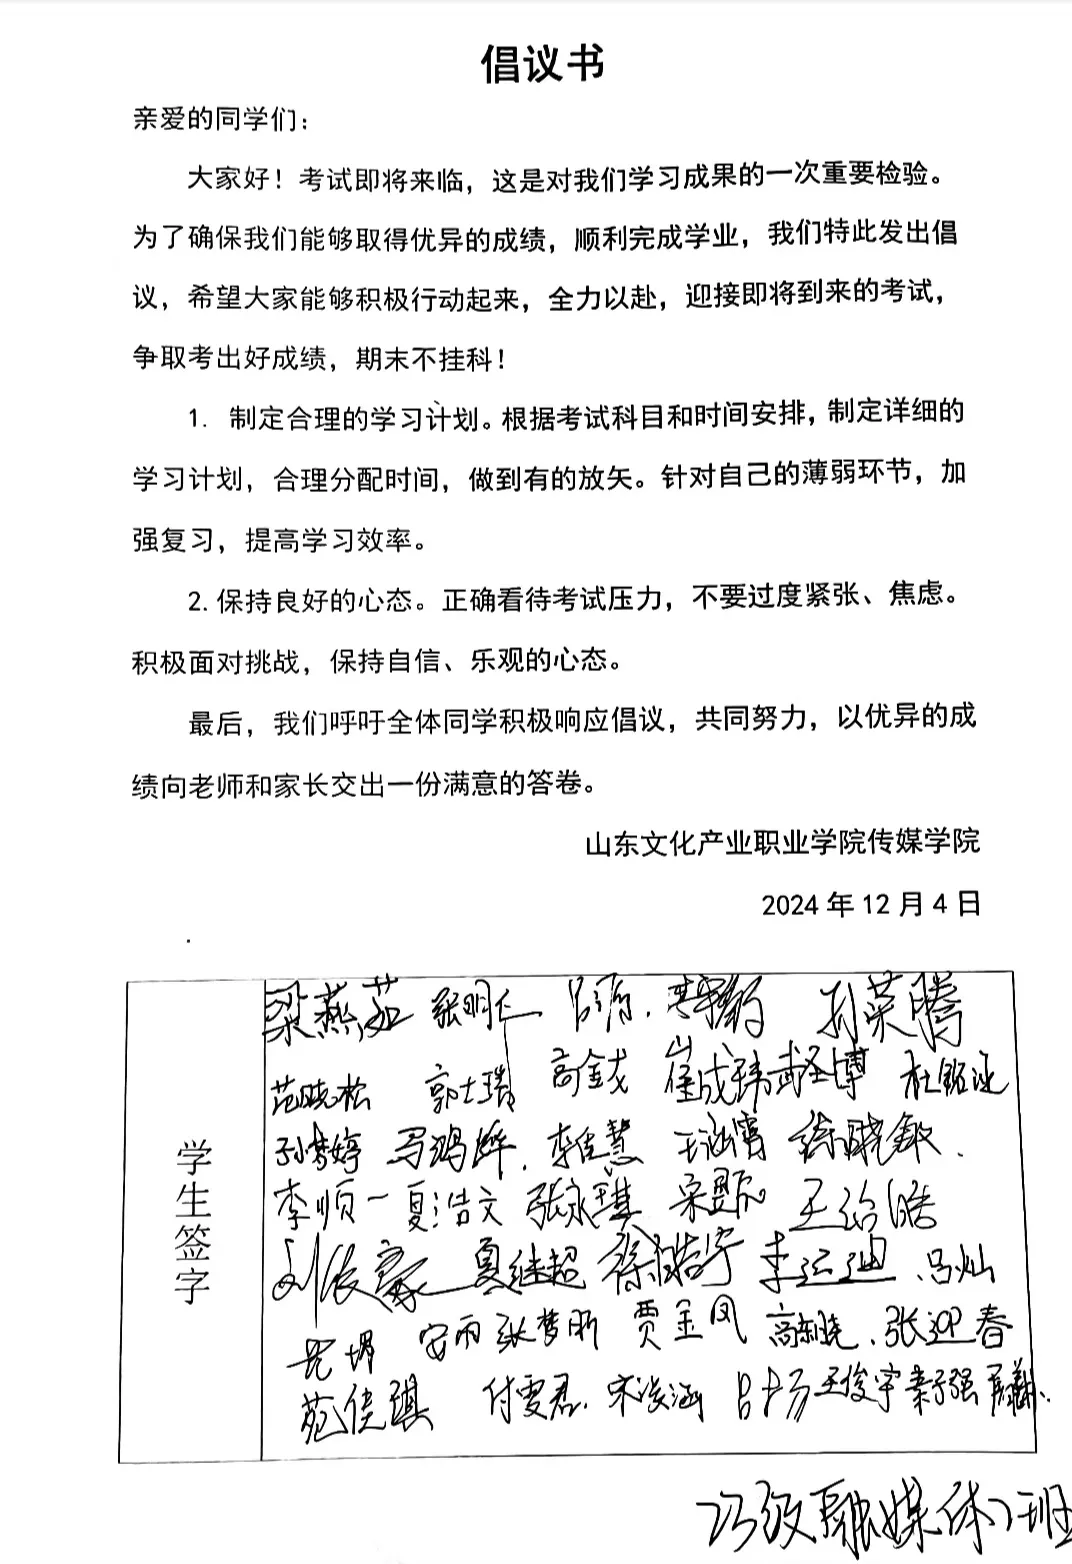 倡议书
亲爱的同学们：
大家好！考试即将来临，这是对我们学习成果的一次重要检验。
为了确保我们能够取得优异的成绩，顺利完成学业，我们特此发出倡
议，希望大家能够积极行动起来，全力以赴，迎接即将到来的考试，
争取考出好成绩，期末不挂科！
1. 制定合理的学习计划。根据考试科目和时间安排，制定详细的
学习计划，合理分配时间，做到有的放矢。针对自己的薄弱环节，加
强复习，提高学习效率。
2.保持良好的心态。正确看待考试压力，不要过度紧张、焦虑。
积极面对挑战，保持自信、乐观的心态。
最后，我们呼吁全体同学积极响应倡议，共同努力，以优异的成
绩向老师和家长交出一份满意的答卷。
山东文化产业职业学院传媒学院
2024年12月4日
学生签字
梁燕茹 张明仁 孙荣腾
范晓松 郭士瑞 高金戈 崔成玮 武圣博
孙梦婷 马鸿烨 李佳慧 王涵霄 徐晓敏
李顺一 夏浩文 张永琪 王治皓
夏继超 徐皓宇 李运迪 吕灿
安雨 张梦昕 贾金凤 高东晓 张迎春
苑佳琪 付雯君 宋浚涵 王俊宇 秦子强
23级融媒体2班